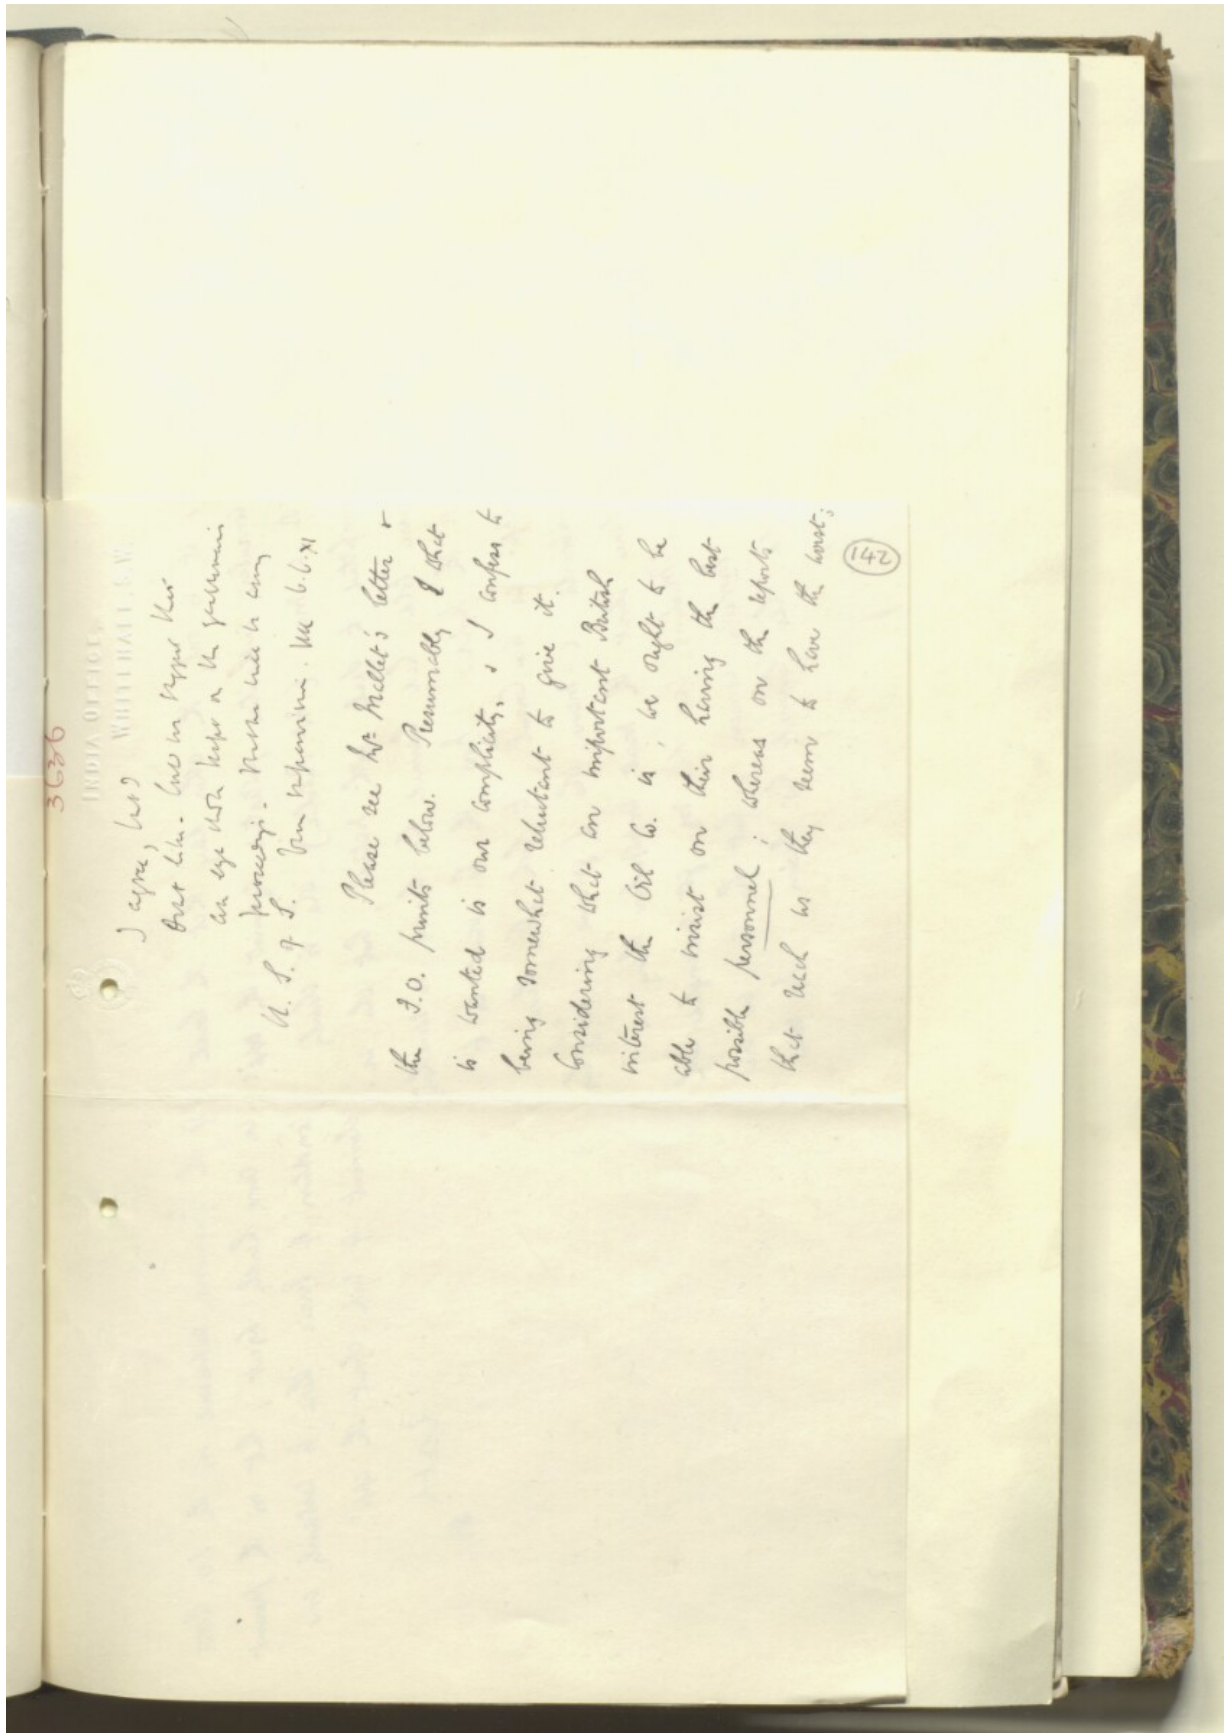 3636
INDIA OFFICE,
WHITEHALL, S.W.
I agree, but I
that
an eye kept on the
U. S. of S.
6.6.XI
Please see Mr Mallet's letter &
the F.O. prints below. Presumably what
is wanted is our complicity, & I confess to
being somewhat reluctant to give it.
Considering what an important British
interest the Oil Co. is, we ought to be
able to insist on their having the best
possible personnel; whereas on the reports
that reach us they seem to have the worst;
142